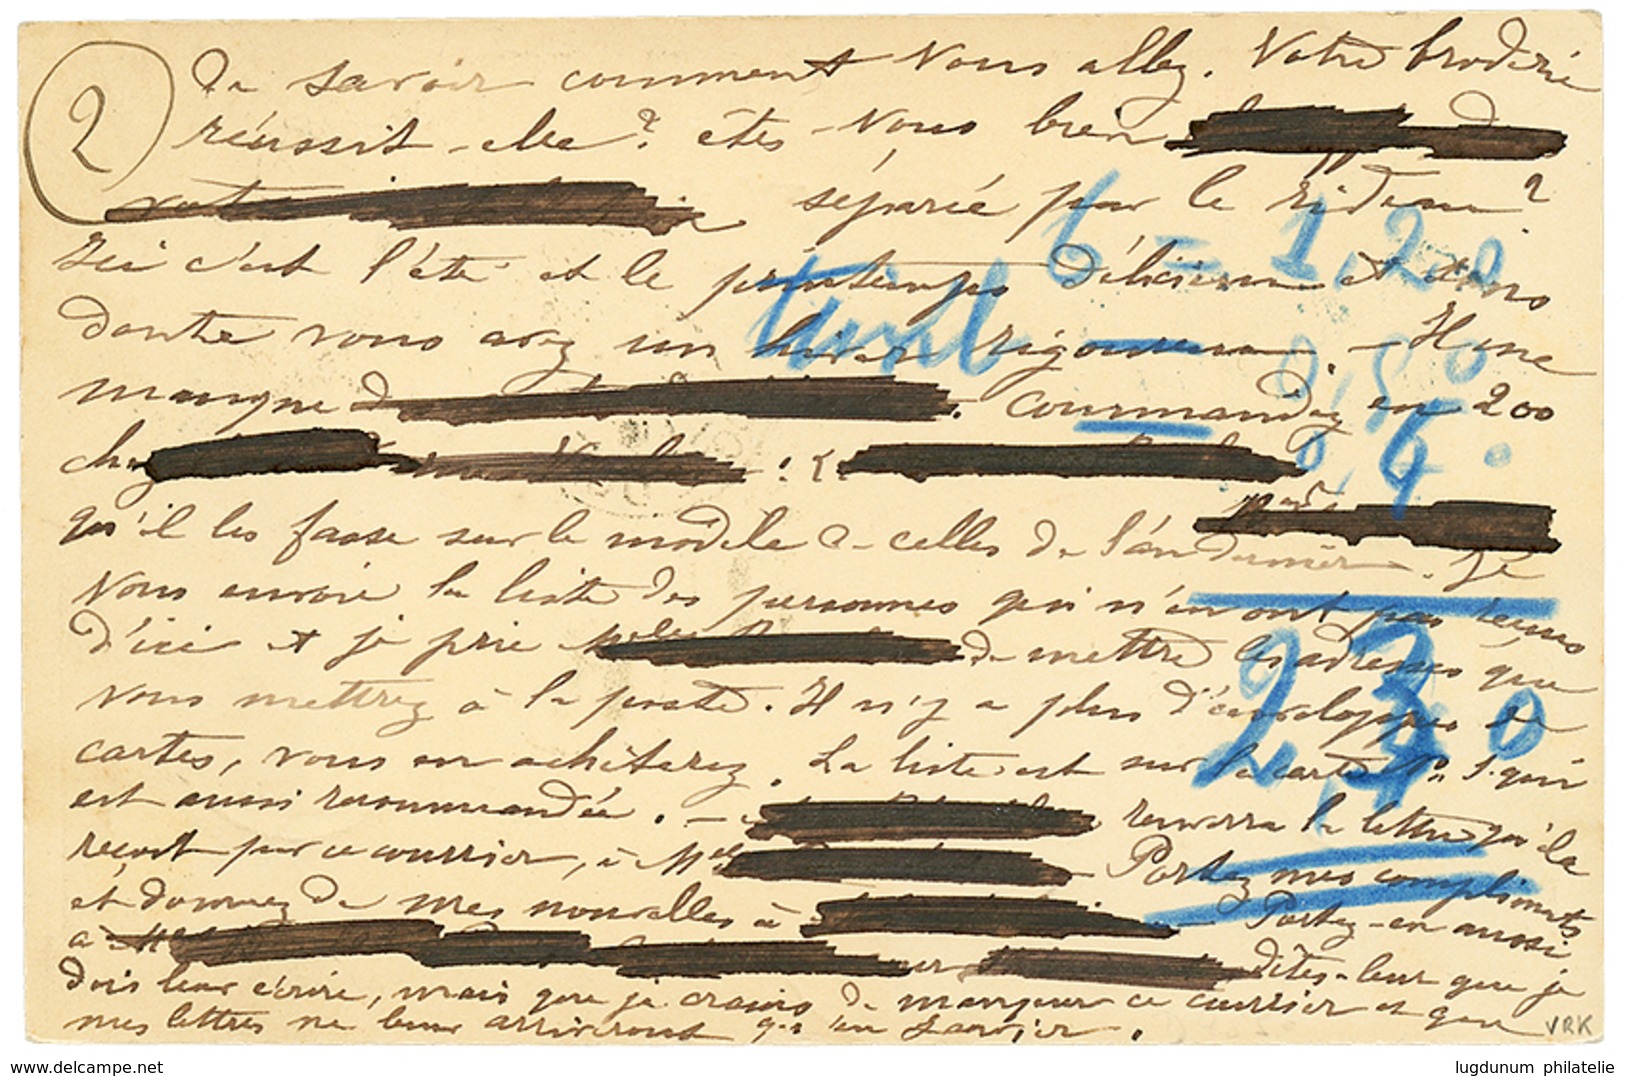 2
de savoir comment vous allez. Votre broderie
réussit-elle ? êtes-vous bien
séparée par le rideau ?
Ici c'est l'été et le printemps délicieux et sans
doute vous avez un hiver rigoureux. - Il me
manque d . Commandez en 200
chez :
qu'il les fasse sur le modèle de celles de l'an dernier. Je
vous envoie la liste des personnes qui n'en ont pas reçues
d'ici et je prie de mettre les adresses que
vous mettrez à la poste. Il n'y a plus d'enveloppes de
cartes, vous en achèterez. La liste est sur la carte n° 1 qui
est aussi recommandée. - renverra la lettre qu'il a
reçoit par ce courrier, à Mlle Portez mes compliments
et donnez de mes nouvelles à Portez-en aussi
à dites-leur que je
dois leur écrire, mais que je crains de manquer ce courrier et que
mes lettres ne leur arriveront qu'en Janvier.
6 = 1,20
23,40
VRK
www.delcampe.net
lugdunum philatelie